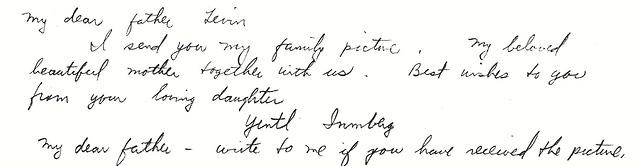 My dear father Levin
I send you my family picture. My beloved
beautiful mother together with us. Best wishes to you
from your loving daughter
Yentl
My dear father - write to me if you have received the picture.